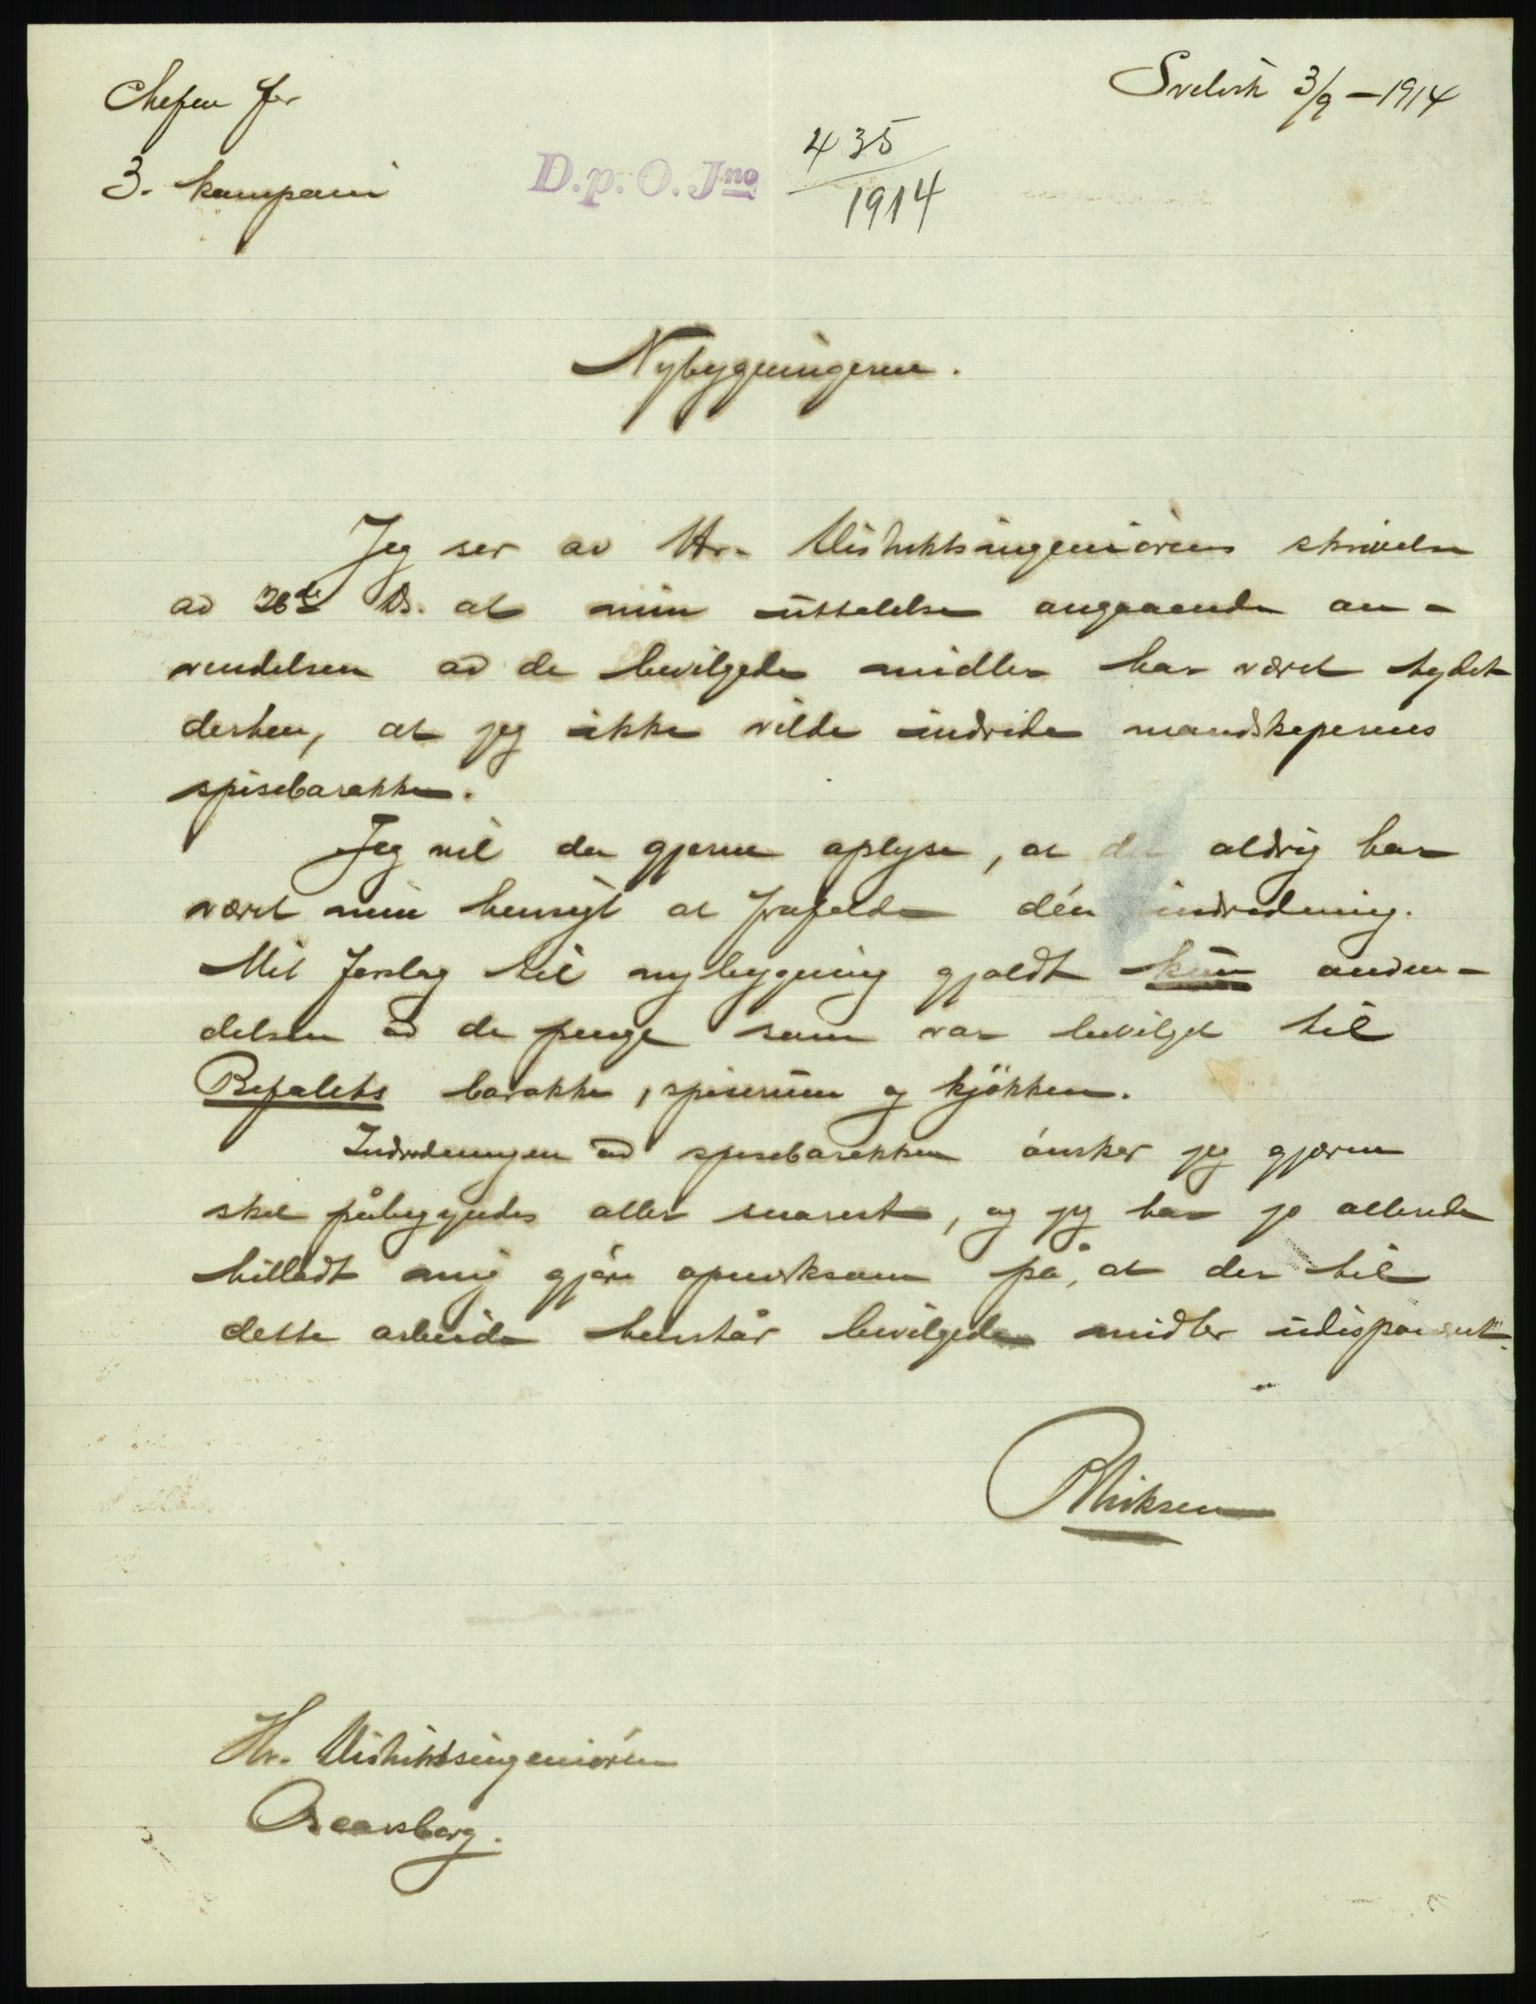 Chefen for
Svelvik 3/9 - 1914
3. kompani
D.p.O. Jno 435
1914
Nybygningerne.
Jeg ser av Hr. Distriktsingeniörens skrivelse
av 26de ds. at min uttalelse angaaende an-
vendelsen av de bevilgede midler har været tydet
derhen, at jeg ikke vilde indrede mandskapernes
spisebarakke.
Jeg vil da gjerne oplyse, at det aldrig har
været min hensigt at frafalde dén indredning.
Mit forslag til nybygning gjaldt kun anven-
delsen av de penge som var bevilget til
Befalets barakke, spiserum og kjökken.
Indredningen av spisebarakken önsker jeg gjerne
skal påbegyndes aller snarest, og jeg har jo allerede
tilladt mig gjöre opmerksom på, at der til
dette arbeide henstår bevilgede midler udisponert.
Hr. Distriktsingeniören
Oscarsborg.